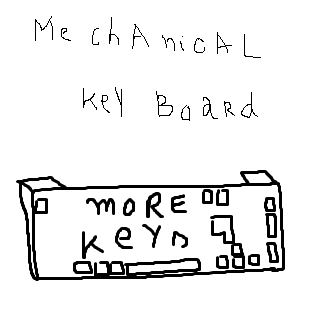 MechAnicAL
KEy BoaRd
moRE
KeyS